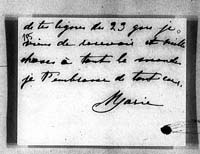 de tes lignes du 23 que je
viens de recevoir et mille
choses à tout le monde
je t'embrasse de tout cœur,
Marie